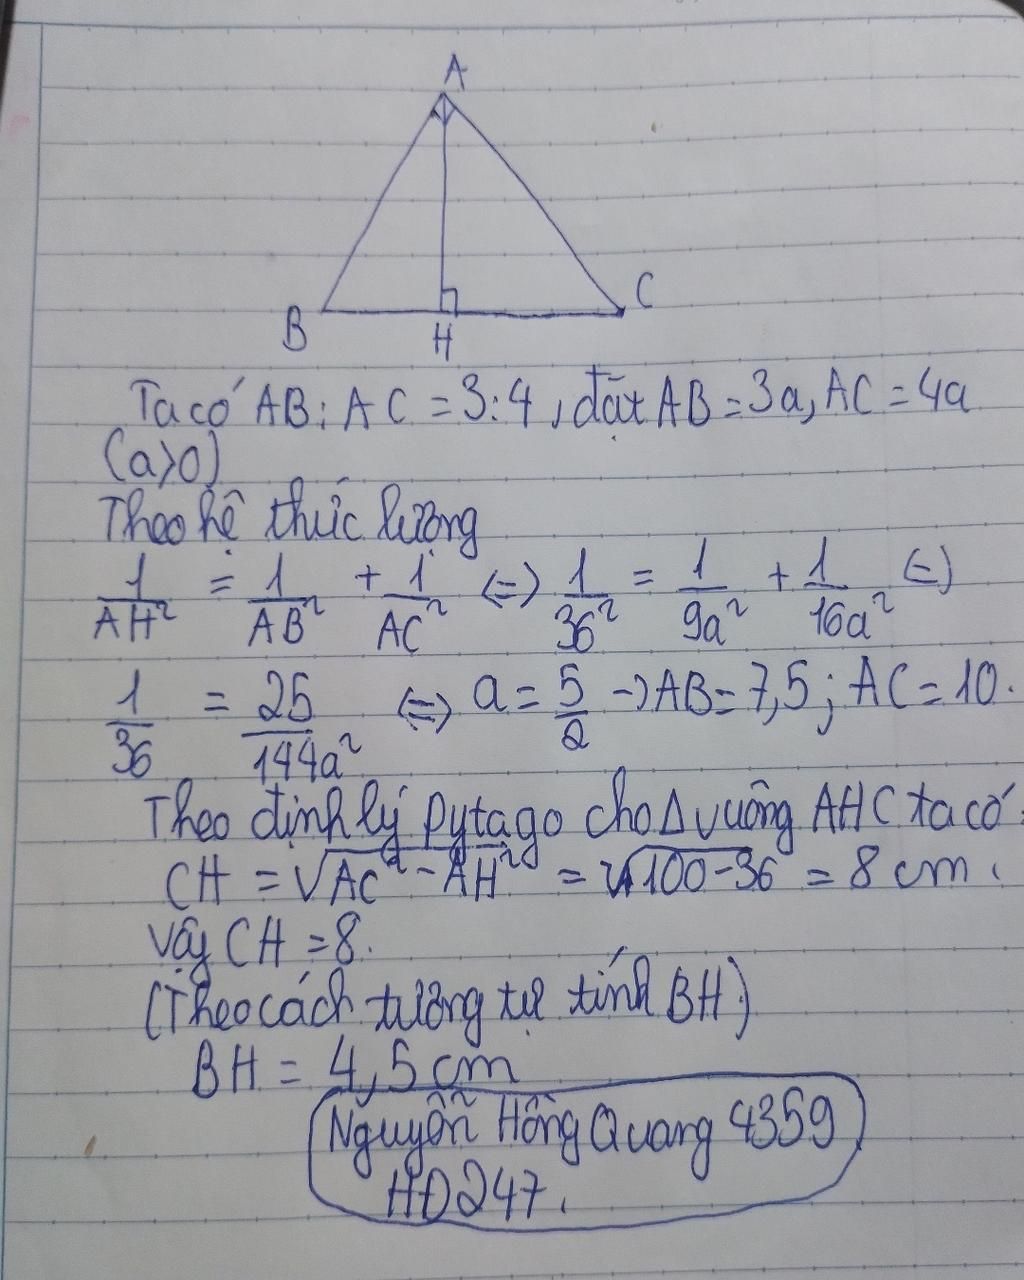 A
B
H
C
Ta có AB : AC = 3:4, đặt AB = 3a, AC = 4a
(a>0)
Theo hệ thức lượng
1/AH² = 1/AB² + 1/AC² (=) 1/36² = 1/9a² + 1/16a² (=)
1/36 = 25/144a² (=) a = 5/2 → AB = 7,5; AC = 10.
Theo định lý Pytago cho Δ vuông AHC ta có:
CH = √AC² - AH² = √100-36 = 8 cm.
Vậy CH = 8.
(Theo cách tương tự tính BH)
BH = 4,5 cm
Nguyễn Hồng Quang 4359
HD247.